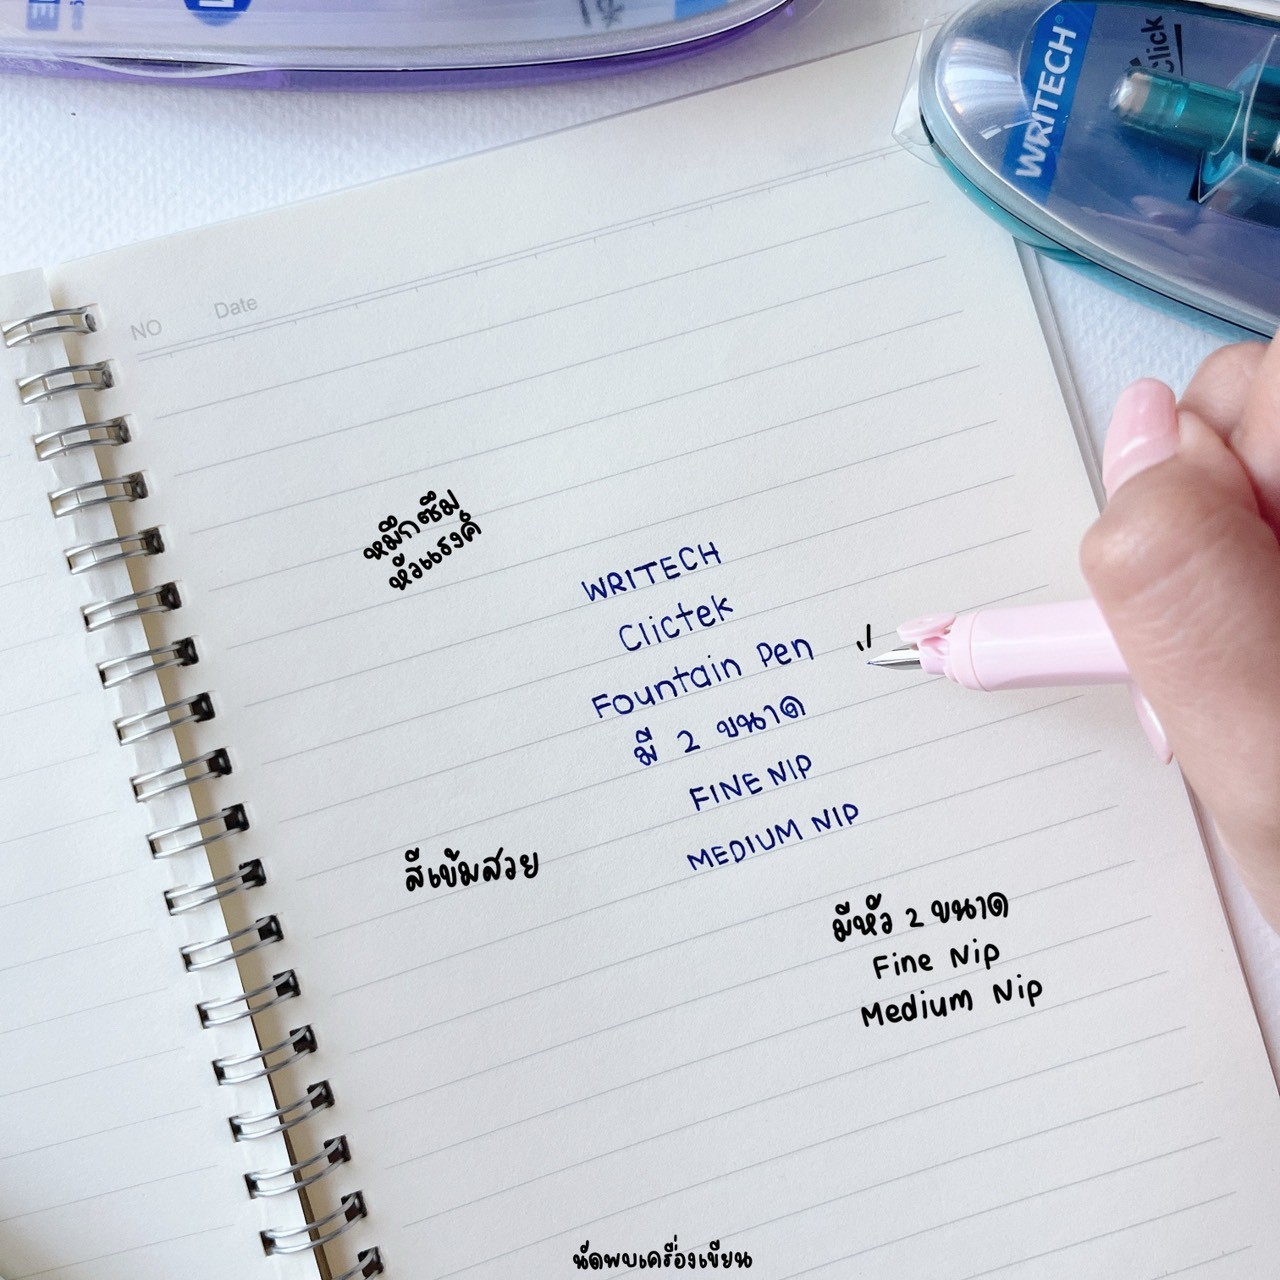 WRITECH
click
NO Date
หมึกซึม
หัวแรงค์
WRITECH
Clictek
Fountain Pen
มี 2 ขนาด
FINE NIP
MEDIUM NIP
สีเข้มสวย
มีหัว 2 ขนาด
Fine Nip
Medium Nip
นัดพบเครื่องเขียน